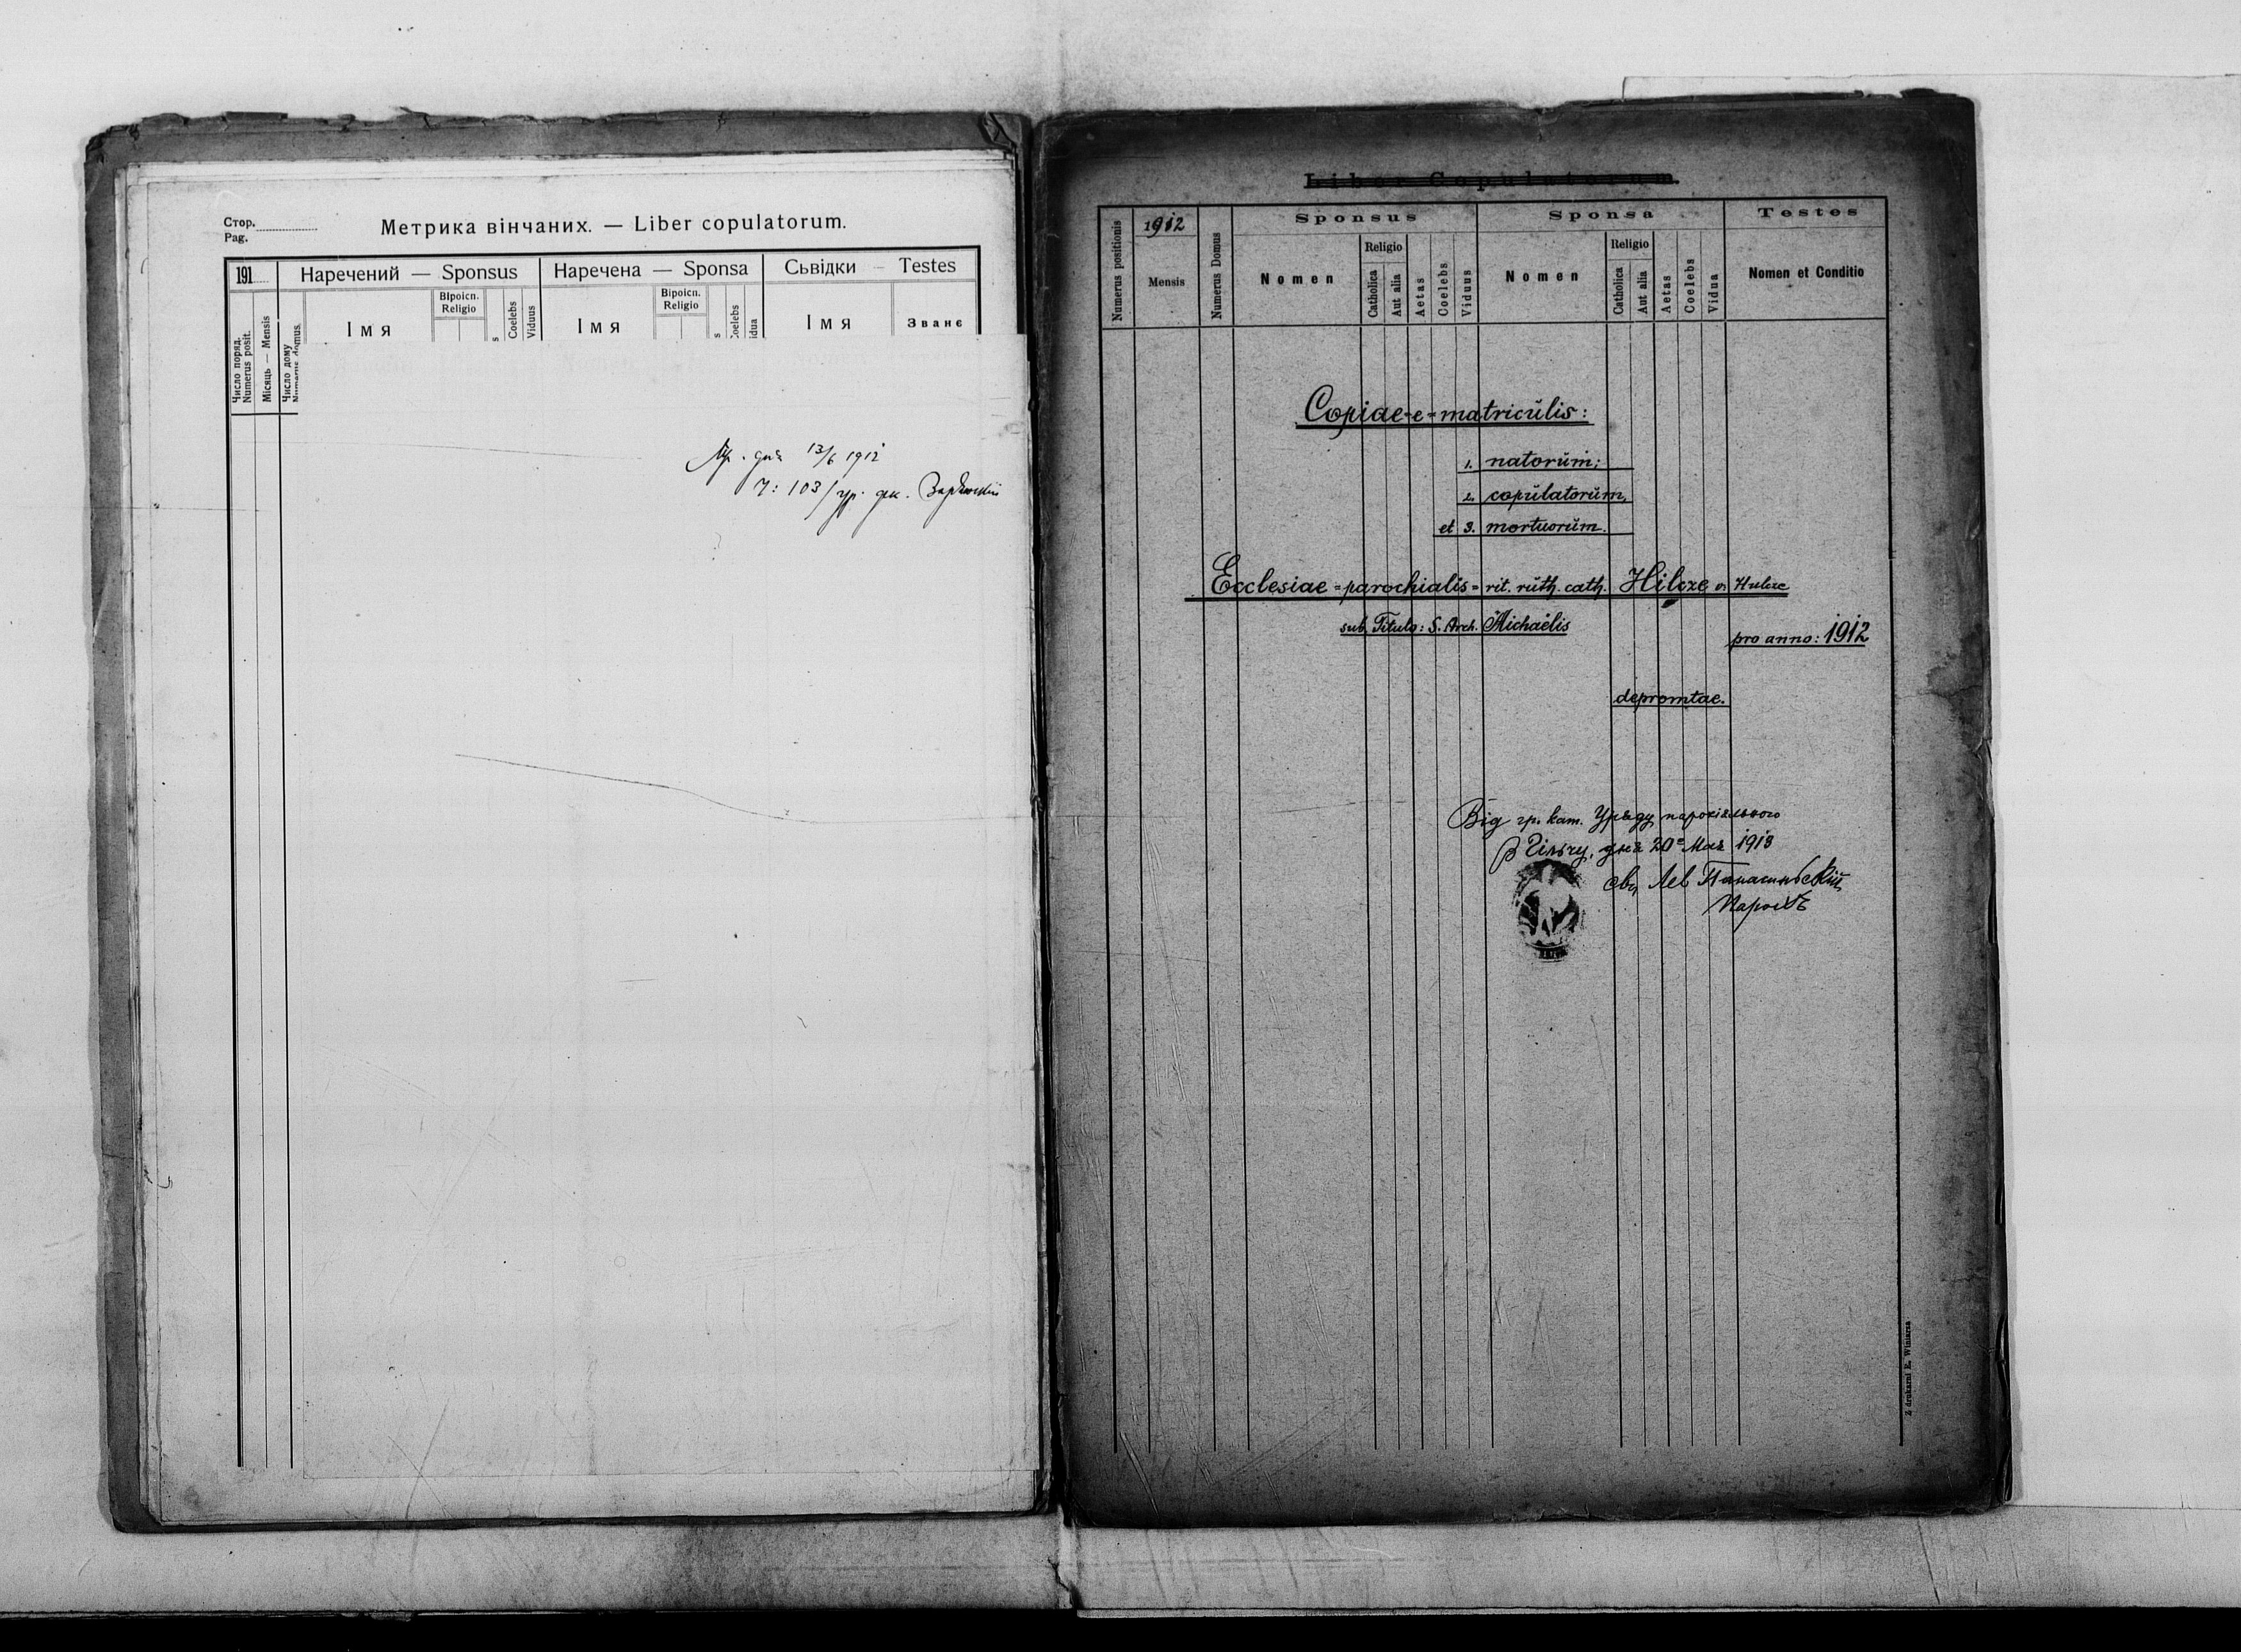 Стор.
Pag.
Метрика вінчаних. — Liber copulatorum.
191
Наречений — Sponsus
Наречена — Sponsa
Сьвідки — Testes
Число поряд.
Numerus posit.
Місяць — Mensis
Число дому
Numerus domus.
Імя
Віроісп.
Religio
Coelebs
Viduus
Імя
Віроісп.
Religio
Coelebs
idua
Імя
Званє
дня 13/6 1912
Ч: 103
Liber Copulatorum.
Numerus positionis
1912
Mensis
Numerus Domus
Sponsus
Nomen
Religio
Catholica
Aut alia
Aetas
Coelebs
Viduus
Sponsa
Nomen
Religio
Catholica
Aut alia
Aetas
Coelebs
Vidua
Testes
Nomen et Conditio
Copiae=e=matriculis:
1. natorum;
2. copulatorum,
et 3. mortuorum.
Ecclesiae=parochialis=rit. ruth. cath. Hilcze
sub Titulo: S. Arch. Michaëlis
pro anno: 1912
depromtae.
Від гр. кат. Уряду парохіяльного
в Гільчу, дня 20 Мая 1913
Лев
Парох
Z drukarni E. Winiarza